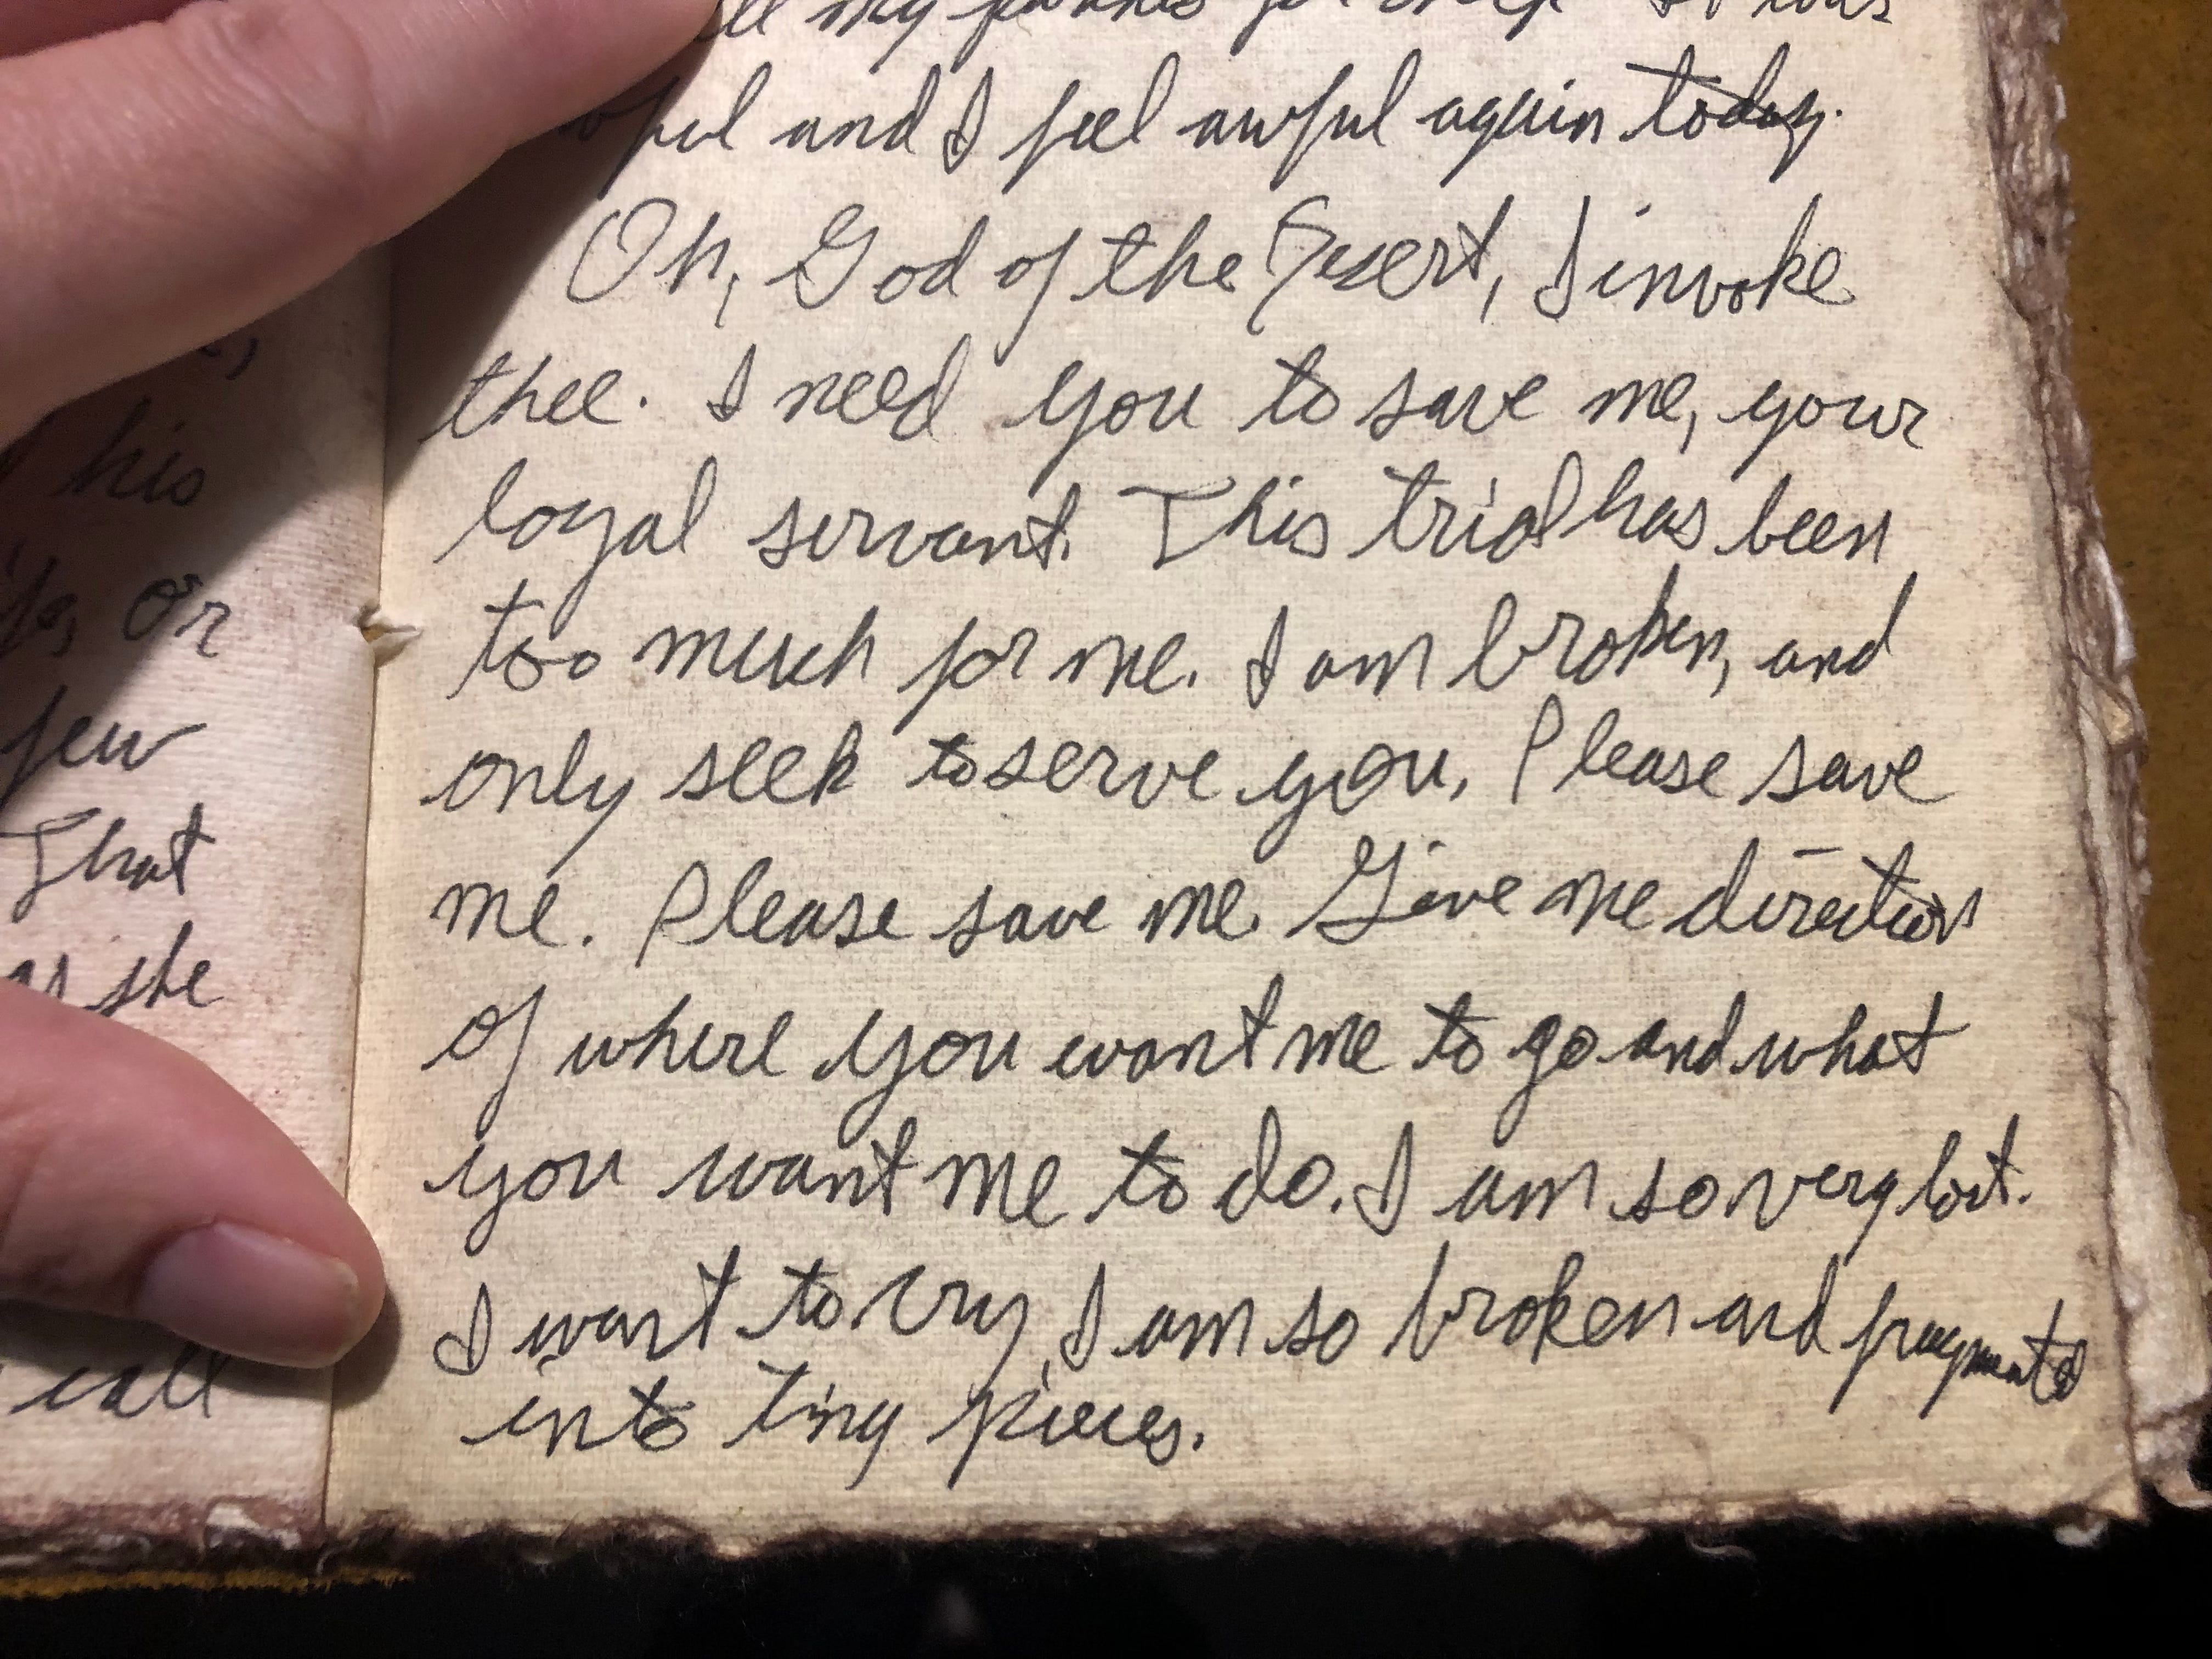 his
or
few
That
she
call
my for help It was
and I feel awful again today.
Oh, God of the Desert, I invoke
thee. I need you to save me, your
loyal servant. This trial has been
too much for me. I am broken, and
only seek to serve you. Please save
me. Please save me. Give me direction
of where you want me to go and what
you want me to do. I am so very lost.
I want to cry, I am so broken and fragmented
into tiny pieces.